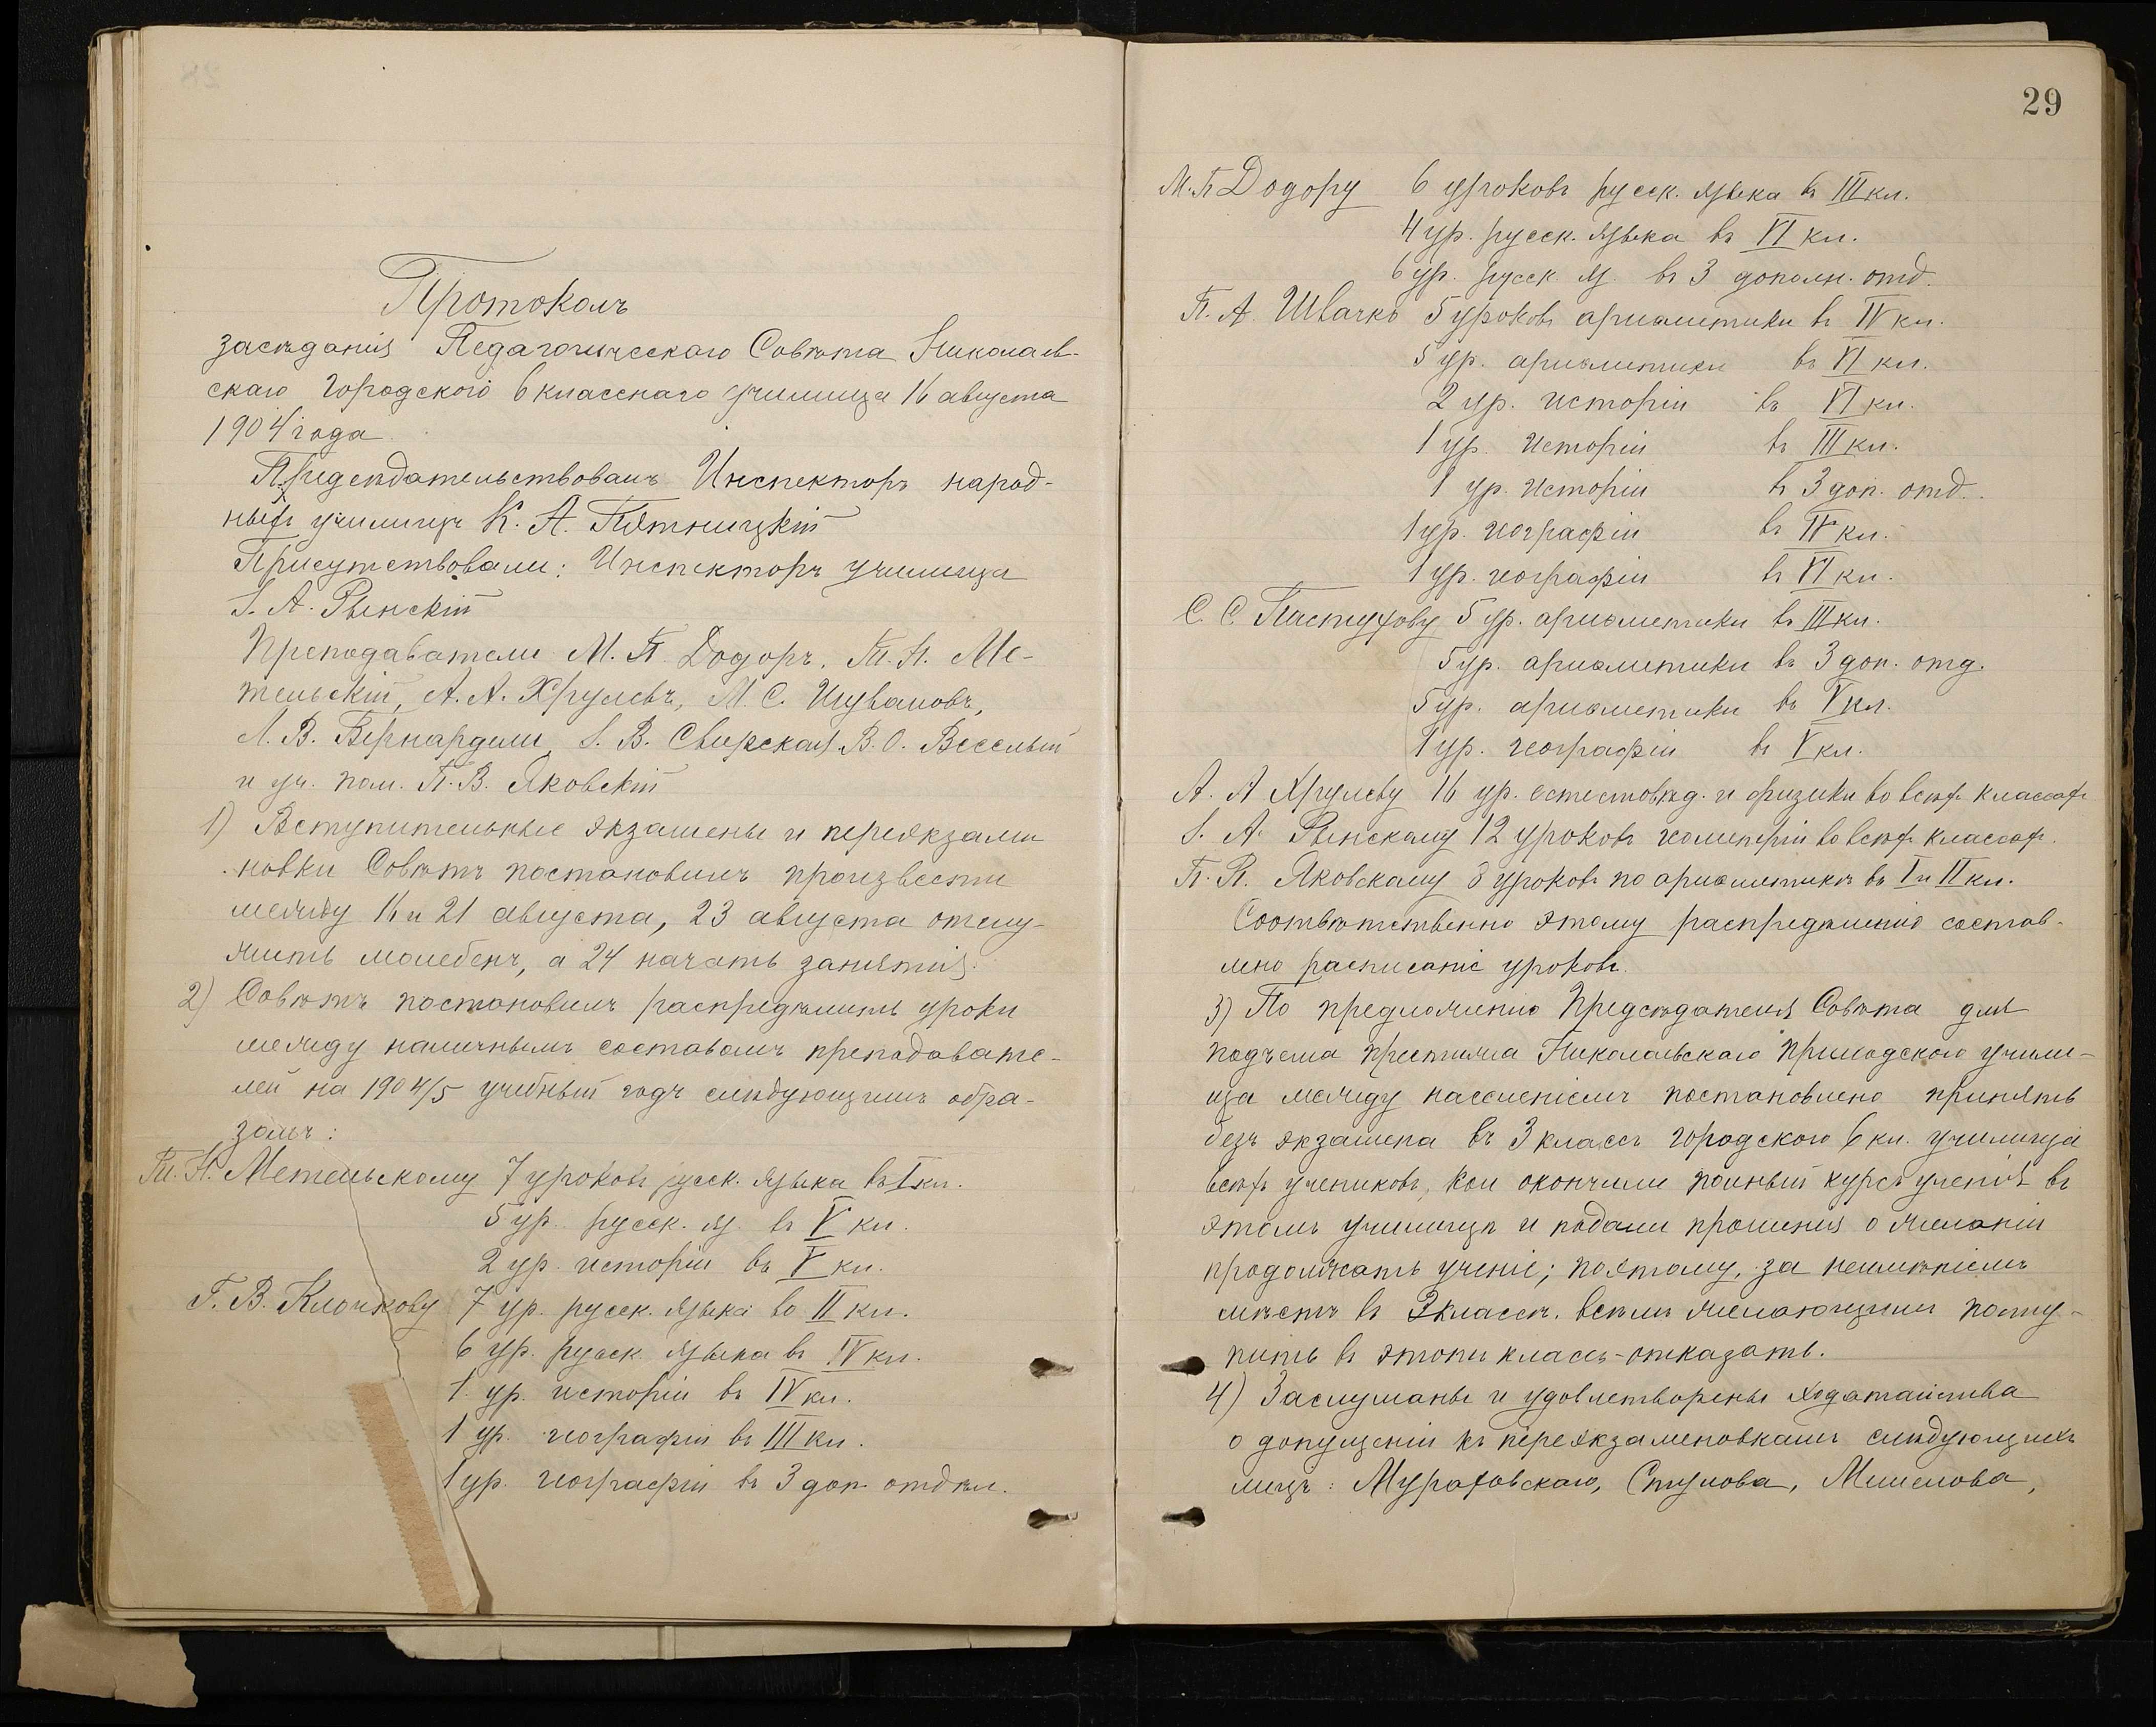 Протоколъ
засѣданія Педагогическаго Совѣта Николаев-
скаго городского 6 класснаго училища 16 августа
1904 года
Предсѣдательствовалъ Инспекторъ народ-
ныхъ училищъ К. А. Пятницкій
Присутствовали: Инспекторъ училища
І. А. Рынскій
Преподаватели М. П. Додоръ, Ш. Н. Ме-
тельскій, А. А. Хрулевъ, М. С. Шуваловъ,
Л. В. Бернардели, І. В. Свирская, В. О. Веселый
и уч. пом. П. В. Яковскій
1) Вступительные экзамены и переэкзаме
новки Совѣтъ постановилъ произвести
между 16 и 21 августа, 23 августа отслу-
жить молебенъ, а 24 начать занятія.
2) Совѣтъ постановилъ распредѣлить уроки
между наличнымъ составомъ преподавате-
лей на 1904/5 учебный годъ слѣдующимъ обра-
зомъ:
Ш. Н. Метельскому 7 уроковъ русск. языка въ I кл.
5 ур. русск. яз. въ V кл.
2 ур. исторіи въ V кл.
Г. В. Клочкову 7 ур. русск. языка во II кл.
6 ур. русск. языка въ IV кл.
1 ур. исторіи въ IV кл.
1 ур. географіи въ III кл.
1 ур. географіи въ 3 доп. отдѣл.
29
М. П. Додору 6 уроковъ русск. языка въ III кл.
4 ур. русск. языка въ VI кл.
6 ур. русск. яз. въ 3 дополн. отд.
П. А. Швачко 5 уроковъ ариѳметики въ IV кл.
5 ур. ариѳметики въ VI кл.
2 ур. исторіи въ VI кл.
1 ур. исторіи въ III кл.
1 ур. исторіи въ 3 доп. отд.
1 ур. географіи въ IV кл.
1 ур. географіи въ VI кл.
С. С. Пастухову 5 ур. ариѳметики въ III кл.
5 ур. ариѳметики въ 3 доп. отд.
5 ур. ариѳметики въ V кл.
1 ур. географіи въ V кл.
А. А. Хрулеву 16 ур. естествовѣд. и физики во всѣхъ классахъ
І. А. Рынскому 12 уроковъ геометріи во всѣхъ классахъ.
П. В. Яковскому 8 уроковъ по ариѳметикѣ въ I и II кл.
Соотвѣтственно этому распредѣленію состав-
лено расписаніе уроковъ.
3) По предложенію Предсѣдателя Совѣта для
подъема престижа Николаевскаго приходского учили-
ща между населеніемъ постановлено принять
безъ экзамена въ 3 классъ городского 6 кл. училища
всѣхъ учениковъ, кои окончили полный курсъ ученія въ
этомъ училищѣ и подали прошенія о желаніи
продолжать ученіе; поэтому, за неимѣніемъ
мѣстъ въ 3 классѣ, всѣмъ желающимъ посту-
пить въ этотъ классъ - отказать.
4) Заслушаны и удовлетворены ходатайства
о допущеніи къ переэкзаменовкамъ слѣдующихъ
лицъ: Мураховскаго, Стулова, Мишелова,